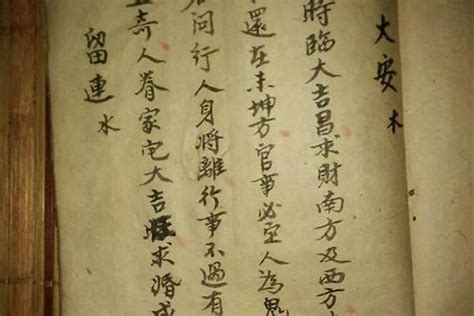 大安木
時臨大吉昌求財南方及西方
還在未坤方官事必定人為鬼
問行人身將離行事不過有
奇人眷家宅大吉 求婚成
留連水